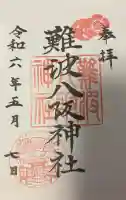 奉拝
難波八阪神社
令和六年五月七日